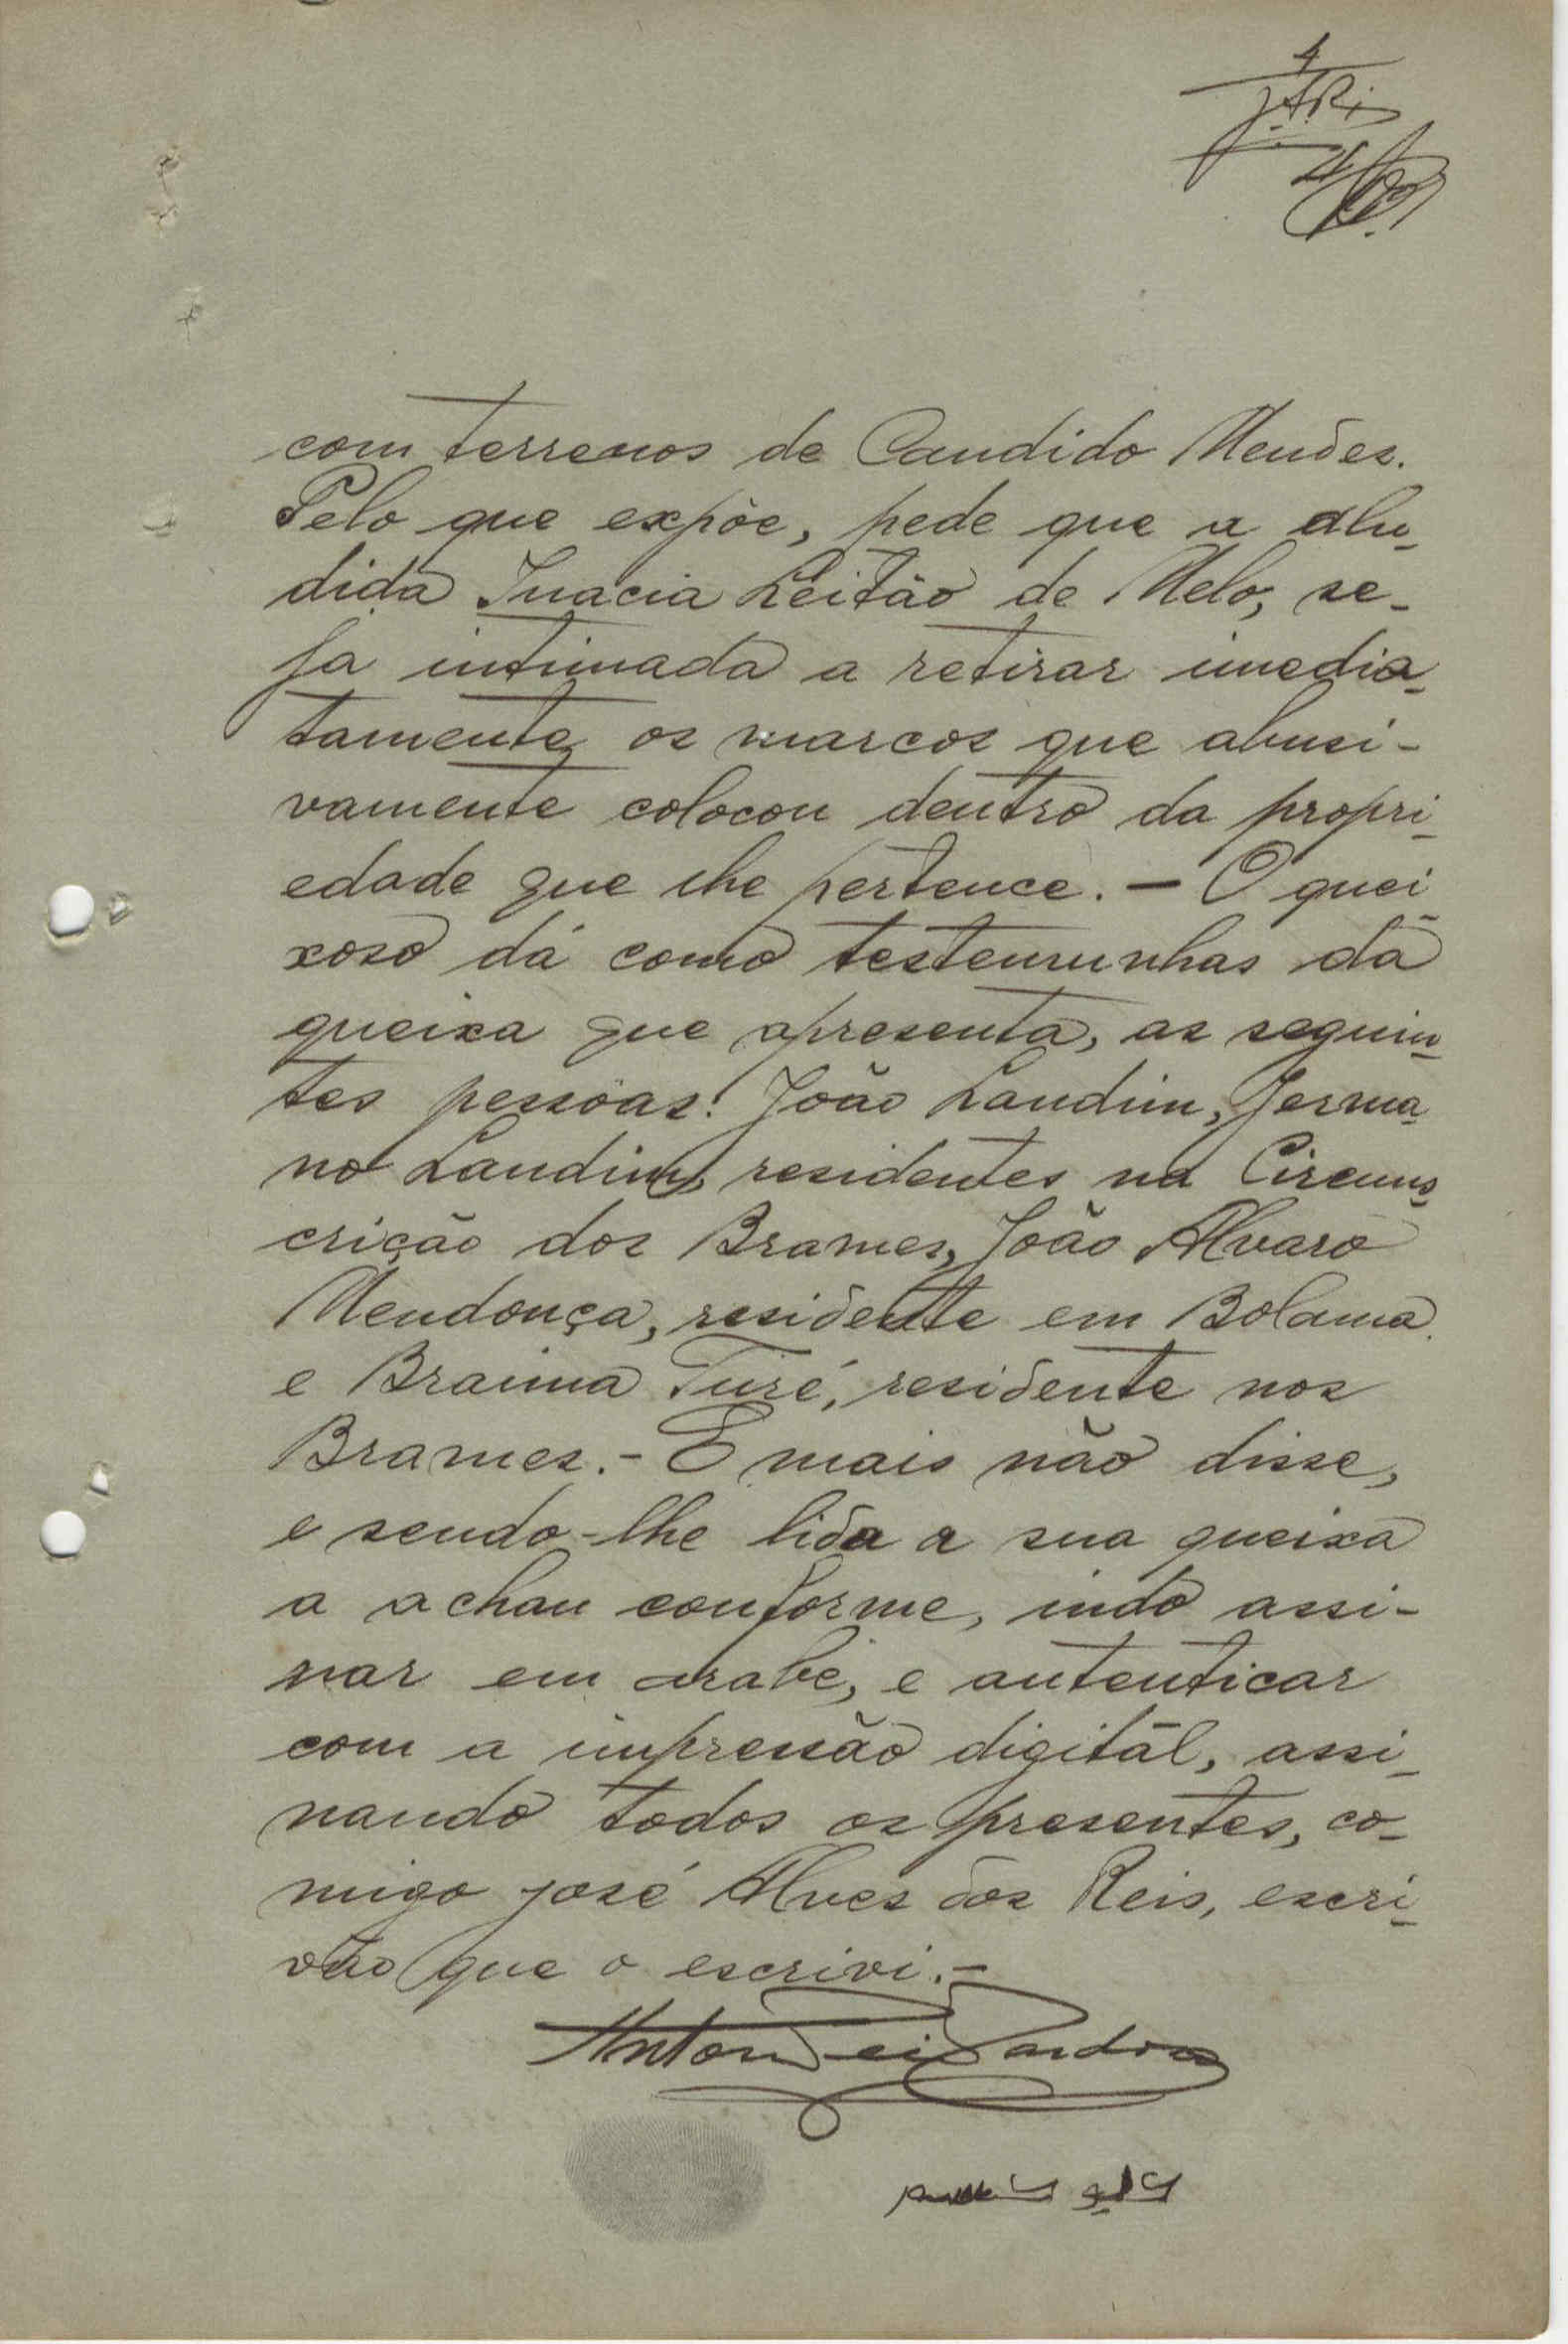 4
com terrenos de Candido Mendes.
Pelo que expõe, pede que a alu-
dida Inacia Leitão de Melo, se-
ja intimada a retirar imedia-
tamente os marcos que abusi-
vamente colocou dentro da propri-
edade que lhe pertence. — O quei-
xoso dá como testemunhas da
queixa que apresenta, as seguin-
tes pessoas: João Landim, Jerma-
no Landim, residentes na Circuns-
crição dos Brames, João Alvaro
Mendonça, residente em Bolama
e Braima Turé, residente nos
Brames. - E mais não disse,
e sendo-lhe lida a sua queixa
a achou conforme, indo assi-
nar em arabe, e autenticar
com a impressão digitál, assi-
nando todos os presentes, co-
migo José Alves dos Reis, escri-
vão que o escrivi. -